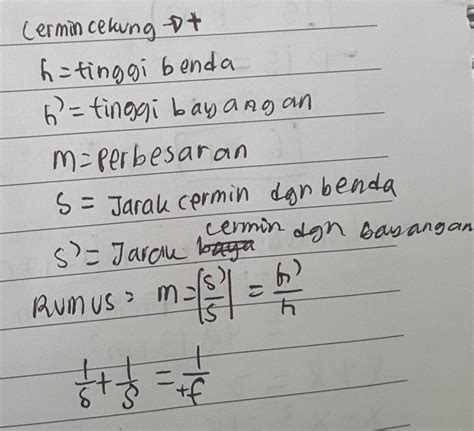 Cermin cekung → +
h = tinggi benda
h' = tinggi bayangan
m = perbesaran
s = Jarak cermin dgn benda
s' = Jarak cermin dgn bayangan
Rumus = m = |s'/s| = h'/h
1/s + 1/s = 1/+f